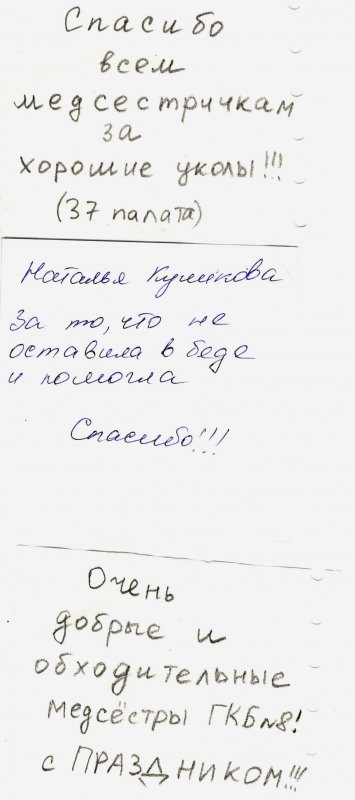 Спасибо
всем
медсестричкам
за
хорошие уколы!!!
(37 палата)
Наталья Куликова
За то, что не
оставила в беде
и помогла
Спасибо!!!
Очень
добрые и
обходительные
медсёстры ГКБ №8!
с ПРАЗДНИКОМ!!!